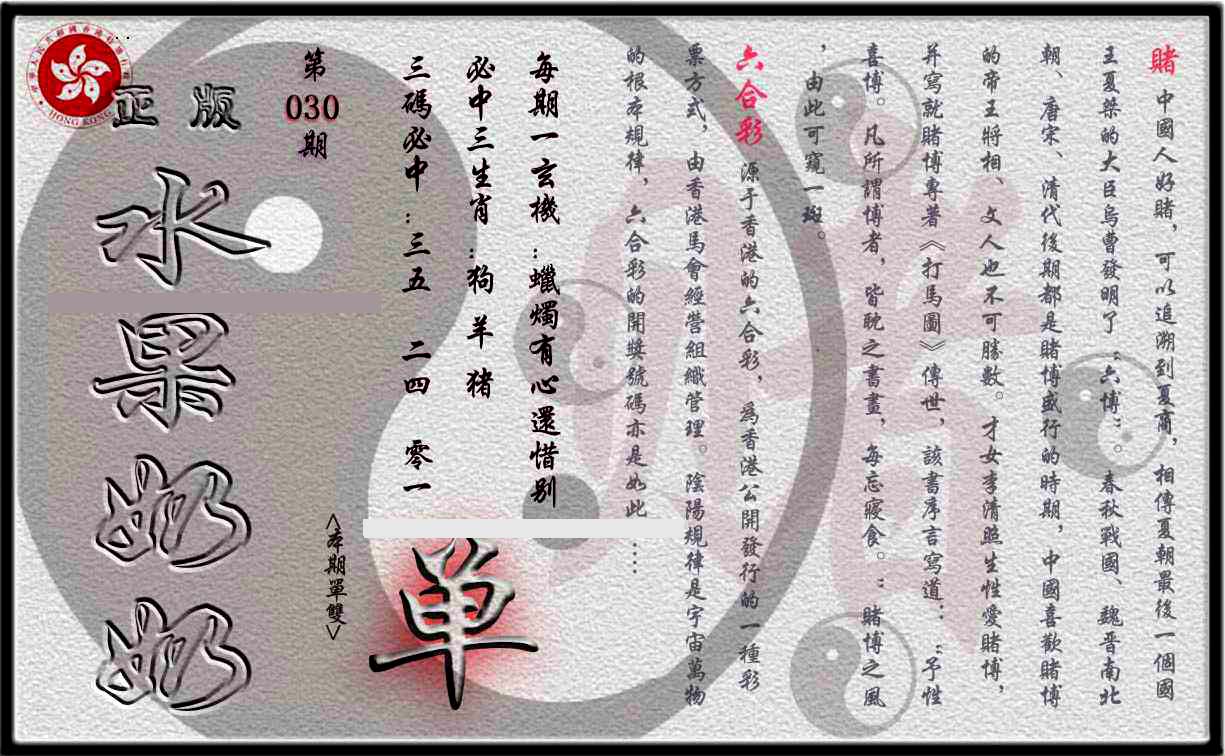 賭 中國人好賭，可以追溯到夏商，相傳夏朝最後一個國
王夏桀的大臣烏曹發明了“六博”　春秋戰國、魏晋南北
朝、唐宋、清代後期都是賭博盛行的時期，中國喜歡賭博
的帝王將相、文人也不可勝數。才女李清照生性愛賭博，
并寫就賭博專著《打馬圖》傳世，該書序言寫道：“予性
喜博。凡所謂博者，皆耽之書畫，每忘寢食。”賭博之風
，由此可窺一斑。
六合彩 源于香港的六合彩，為香港公開發行的一種彩
票方式，由香港馬會經營組織管理。陰陽規律是宇宙萬物
的根本規律，六合彩的開獎號碼亦是如此……
每期一玄機：蠟燭有心還惜别
必中三生肖：狗 羊 猪
三碼必中：三五 二四 零一
第
030
期
<本期單雙>
单
正版
水果奶奶
HONG KONG